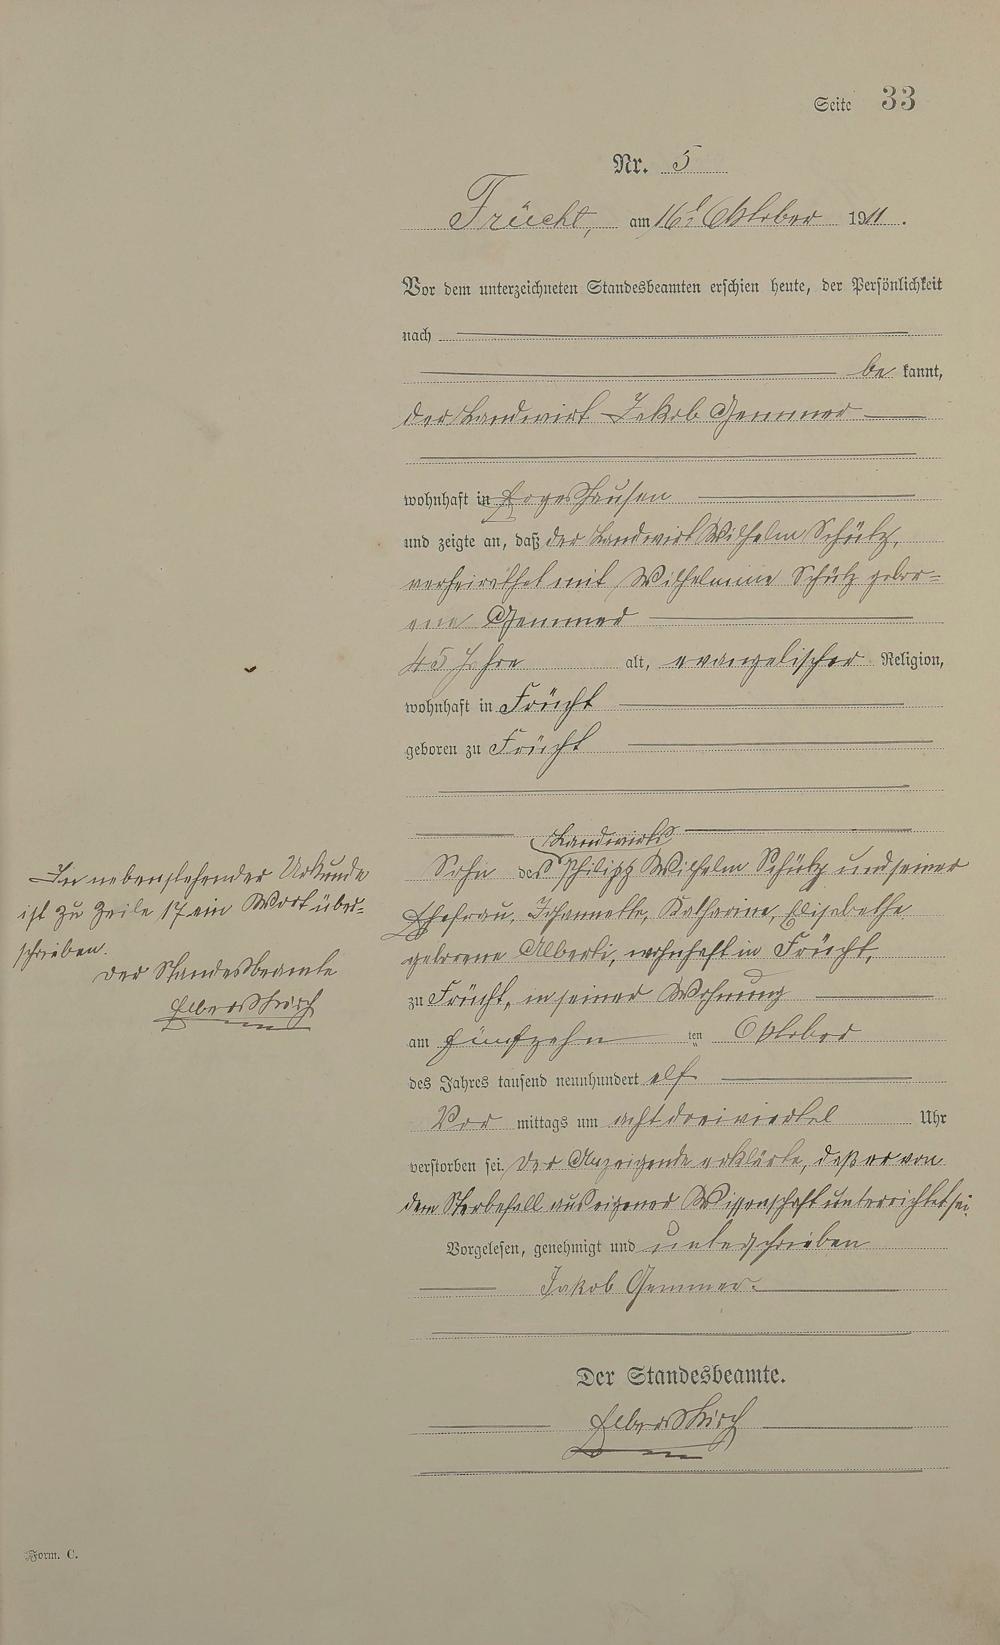 Seite 33
Nr. 5
Frücht, am 16t. Oktober 1911.
Vor dem unterzeichneten Standesbeamten erschien heute, der Persönlichkeit
nach
be kannt,
der Landwirt Jakob Gemmer
wohnhaft in Ergeshausen
und zeigte an, daß der Landwirt Wilhelm Schütz,
verheirathet mit Wilhelmine Schütz gebor-
ene Gemmer
45 Jahre alt, evangelischer Religion,
wohnhaft in Frücht
geboren zu Frücht
Landwirts
Sohn des Philipp Wilhelm Schütz und seiner
Ehefrau, Johannette, Katharine, Elisabethe
geborene Alberti, wohnhaft in Frücht,
zu Frücht, in seiner Wohnung
am fünfzehn ten Oktober
des Jahres tausend neunhundert elf
Vor mittags um acht dreiviertel Uhr
verstorben sei. Der Anzeigende erklärte, daß er von
dem Sterbefall aus eigener Wissenschaft unterrichtet sei.
Vorgelesen, genehmigt und unterschrieben
Jakob Gemmer.
Der Standesbeamte.
Elberskirch
In nebenstehender Urkunde
ist zu Zeile 17 ein Wort über-
schrieben.
Der Standesbeamte
Elberskirch
Form. C.